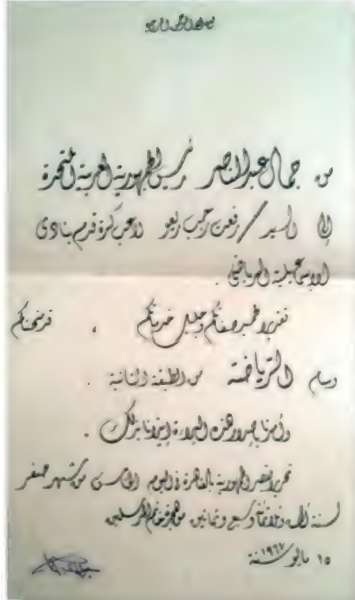 بسم الله الرحمن الرحيم
من جمال عبد الناصر رئيس الجمهورية العربية المتحدة
إلى السيد / رفعت رجب لاعب كرة قدم بنادى
الاسماعيلية الرياضى .
تقديرا لحميد صفاتكم وجليل خدماتكم ، قد منحناكم
وسام الرياضة من الطبقة الثانية .
وأمرنا بإصدار هذه البراءة إيذانا بذلك .
تحريرا بقصر الجمهورية بالقاهرة فى اليوم الخامس من شهر صفر
لسنة ألف وثلاثمائة وسبع وثمانين من هجرة خاتم المرسلين
١٥ مايو سنة ١٩٦٧